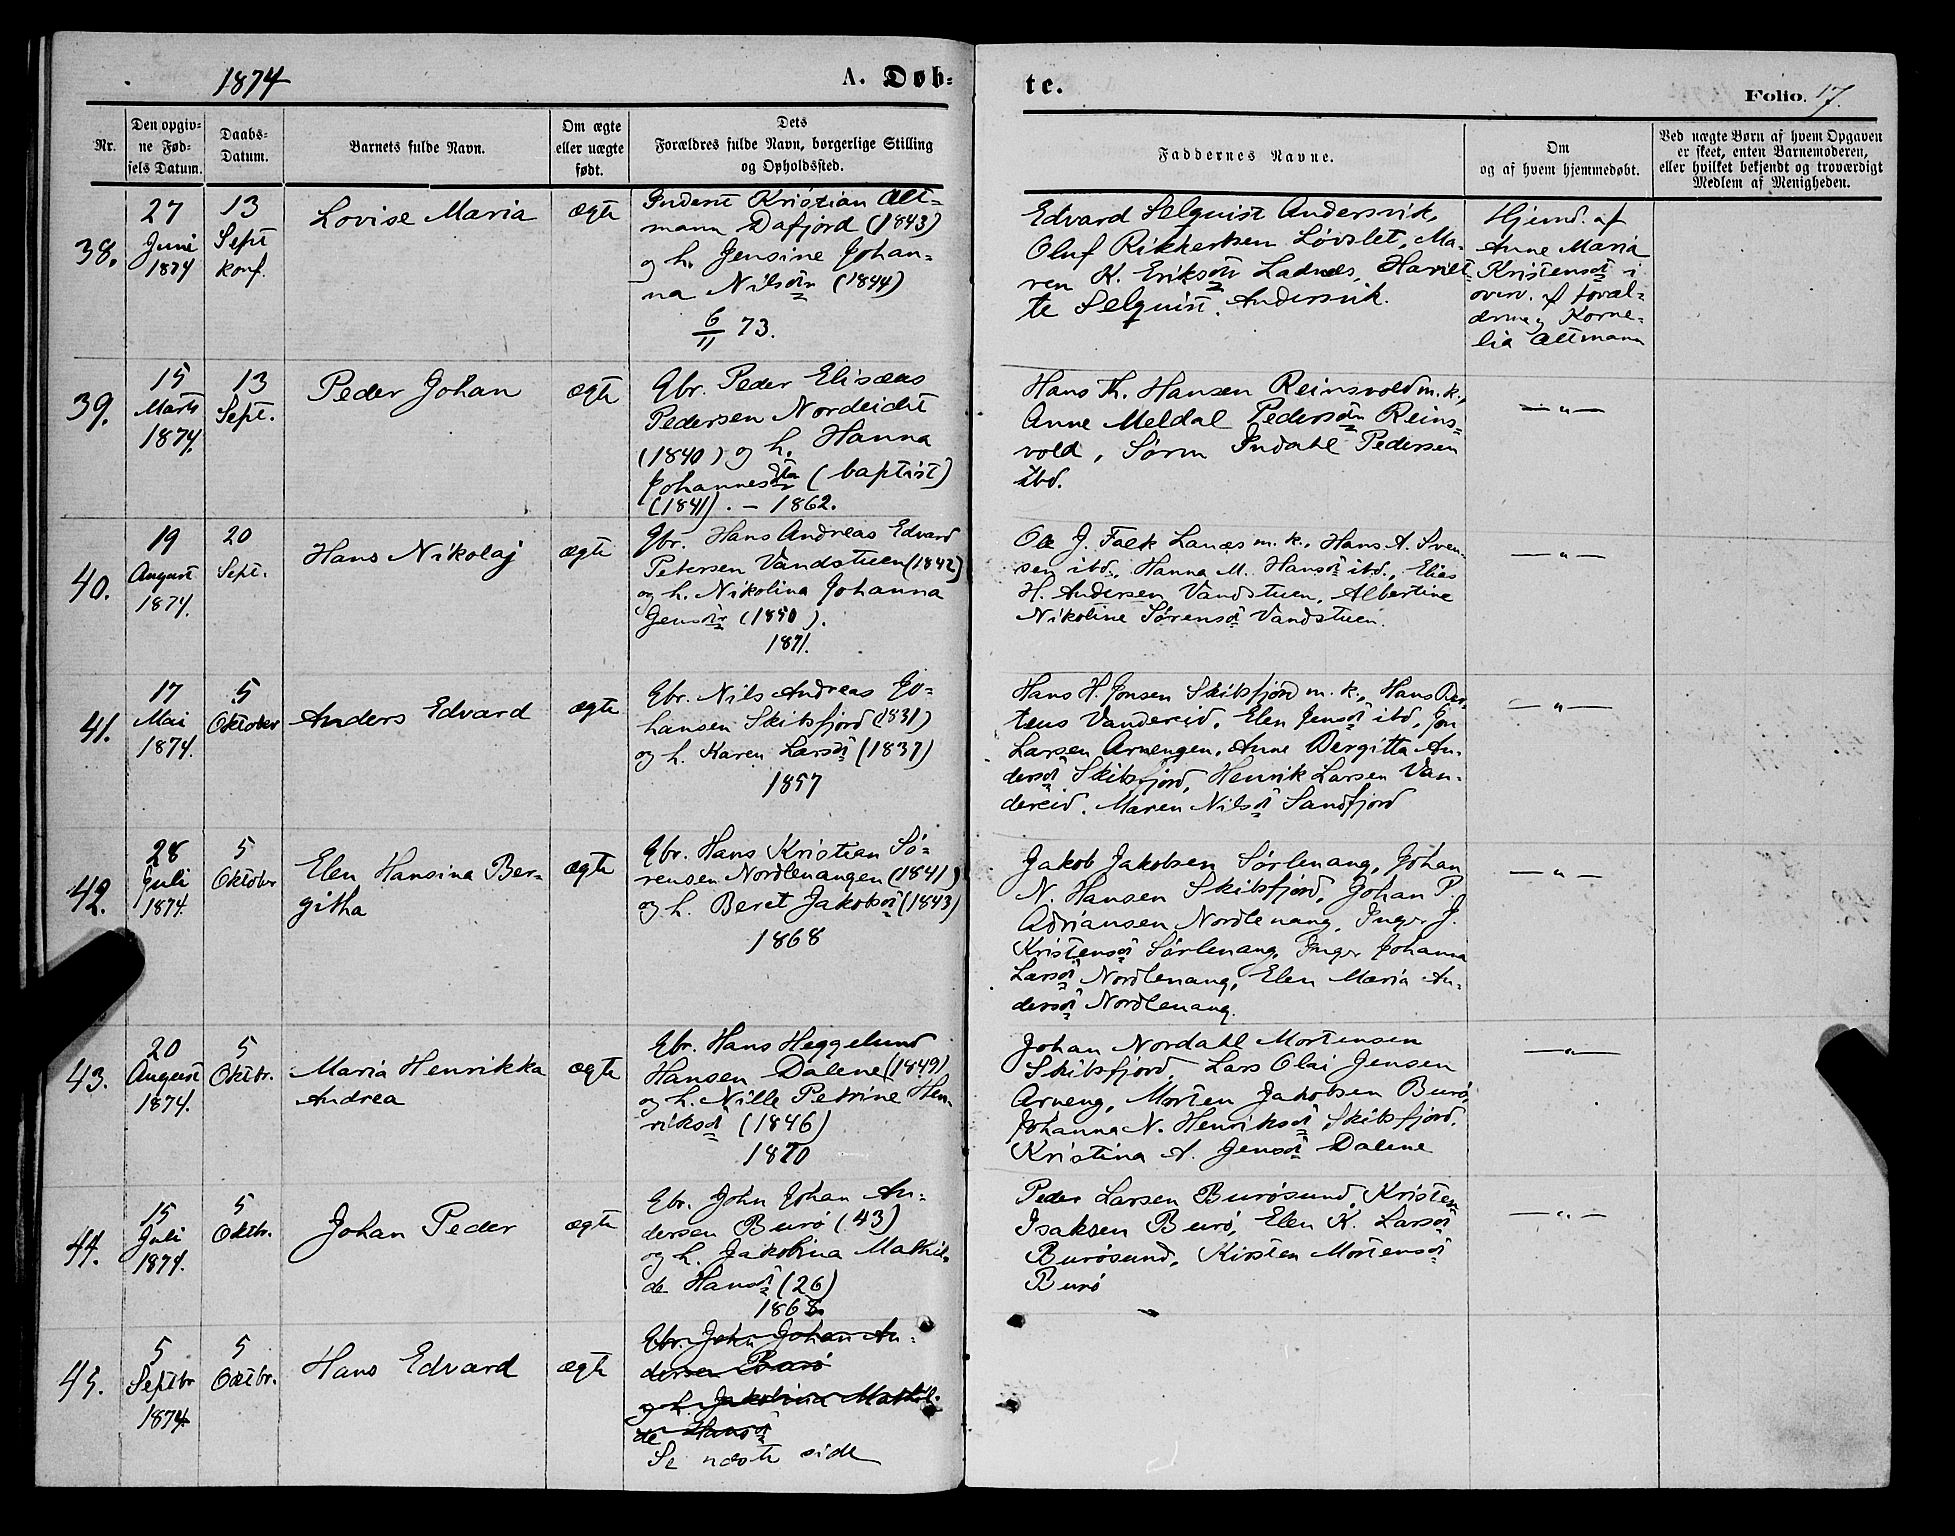 1874
A. Døb-
te.
Folio. 17.
Nr.
Den opgiv-
ne Fød-
sels Datum.
Daabs-
Datum.
Barnets fulde Navn.
Om ægte
eller uægte
født.
Dets
Forældres fulde Navn, borgerlige Stilling
og Opholdssted.
Faddernes Navne.
Om
og af hvem hjemmedøbt.
Ved uægte Børn af hvem Opgaven
er skeet, enten Barnemoderen,
eller hvilket bekjendt og troværdigt
Medlem af Menigheden.
38.
27
Juni
1874
13
Sept
konf.
Lovise Maria
ægte
Inderst Kristian Alt-
mann Dafjord (1843)
og h. Jensine Johan-
na Nilsdr (1844)
6/11 73.
Edvard Selquist Andersvik,
Oluf Rikkertsen Løvslet, Ma-
ren K. Eriksdr Ladnes, Hariet-
te Selquist. Andersvik.
Hjemd. af
Anne Maria
Kristensdr i
overv. af foræl-
drene og Korne-
lia Altmann
39.
15
Marts
1874.
13
Sept.
Peder Johan
ægte
Gbr. Peder Elisæus
Pedersen Nordeidet
(1840) og h. Hanna
Johannesdtr (baptist)
(1841). – 1862.
Hans Th. Hansen Reinsvold m. k.,
Anne Meldal Pedersdr Reins-
vold, Søren Indahl Pedersen
ibd.
— " —
40.
19
August
1874.
20
Sept.
Hans Nikolaj
ægte
Gbr. Hans Andreas Edvard
Petersen Vandstuen (1842)
og h. Nikolina Johanna
Jensdr (1850).
1871.
Ole J. Falk Lanæs m. k., Hans A. Sven-
sen ibd., Hanna M. Hansdr ibd., Elias
H. Andersen Vandstuen, Albertine
Nikoline Sørensdr Vandstuen.
— " —
41.
17
Mai
1874.
5
Oktober
Anders Edvard
ægte
Gbr. Nils Andreas Jo-
hansen Skibsfjord (1831)
og h. Karen Larsdr (1837)
1857
Hans H. Jonsen Skibsfjord m. k., Hans Ber-
teus Vandereid, Elen Jensdr ibd, Jon
Larsen Arnengen, Anne Bergitta An-
dersdr Skibsfjord, Henrik Larsen Van-
dereid. Maren Nilsdr Sandfjord
— " —
42.
28
Juli
1874.
5
Oktober
Elen Hansina Ber-
githa
ægte
Gbr. Hans Kristian Sø-
rensen Nordlenangen (1841)
og h. Beret Jakobsdr (1843)
1868
Jakob Jakobsen Sørlenang, Johan
N. Hansen Skibsfjord, Johan P.
Adriansen Nordlenang, Inger J.
Kristensdr Sørlenang, Inger Johanna
Larsdr Nordlenang, Elen Maria An-
dersdr Nordlenang.
— " —
43.
20
August
1874.
5
Oktbr.
Maria Henrikka
Andrea
ægte
Gbr. Hans Heggelund
Hansen Dalene (1849)
og h. Nille Petrine Hen-
riksdr (1846)
1870
Johan Nordahl Mortensen
Skibsfjord, Lars Olai Jensen
Arneng, Morten Jakobsen Burø,
Johanna N. Henriksdr Skibsfjord.
Kristina A. Jensdr Dalene
— " —
44.
15
Juli
1874.
5
Oktbr.
Johan Peder
ægte
Gbr. John Johan An-
dersen Burø (43)
og h. Jakobina Mathil-
de Hansdr (26)
1868
Peder Larsen Burøsund, Kristen
Isaksen Burø, Elen K. Larsdr
Burøsund, Kirsten Mortensdr
Burø
— " —
45.
5
Septbr
1874
5
Octbr.
Hans Edvard
ægte
Gbr. John Johan An-
dersen Burø
og h. Jakobina Mathil-
de Hansdr
Se næste side